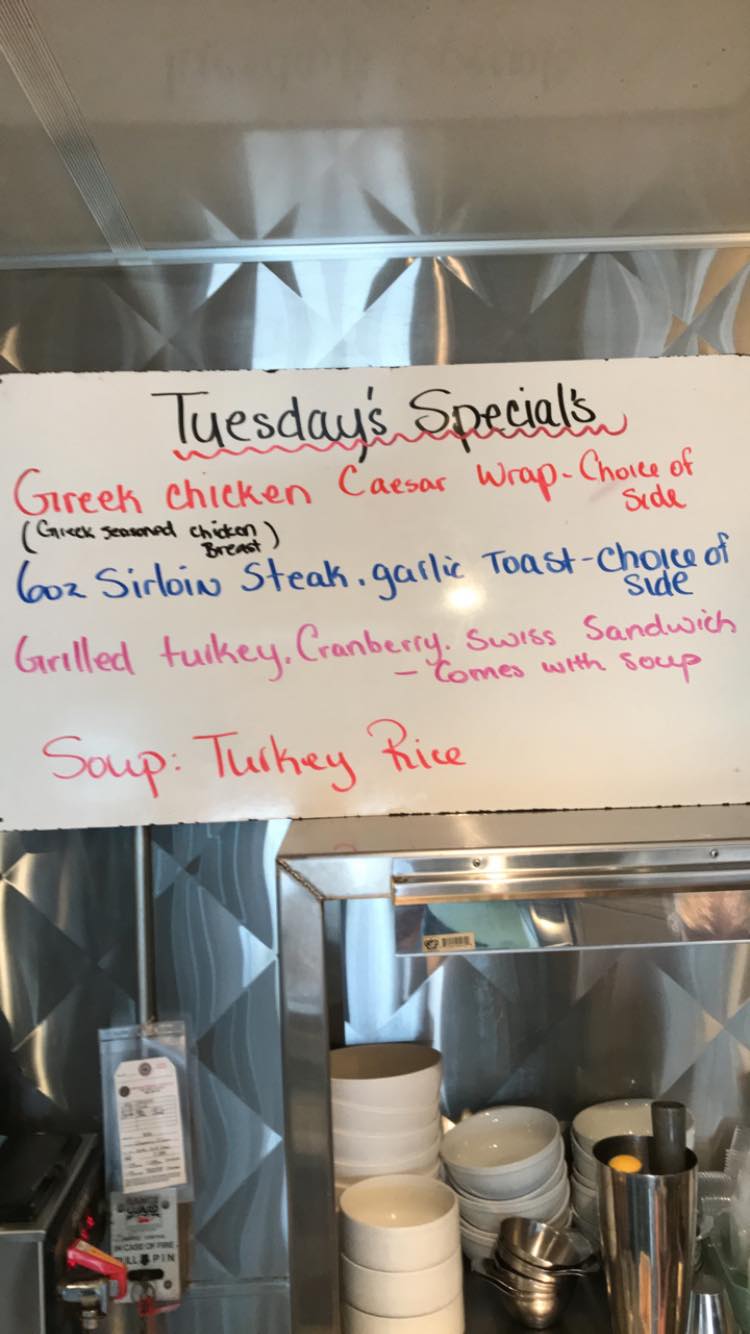 Tuesday's Special's
Greek chicken Caesar Wrap - Choice of
Side
(Greek seasoned chicken
Breast)
6oz Sirloin Steak, garlic Toast - Choice of
Side
Grilled turkey, Cranberry, Swiss Sandwich
- Comes with soup
Soup: Turkey Rice
RANGE
GUARD
IN CASE OF FIRE
PULL PIN